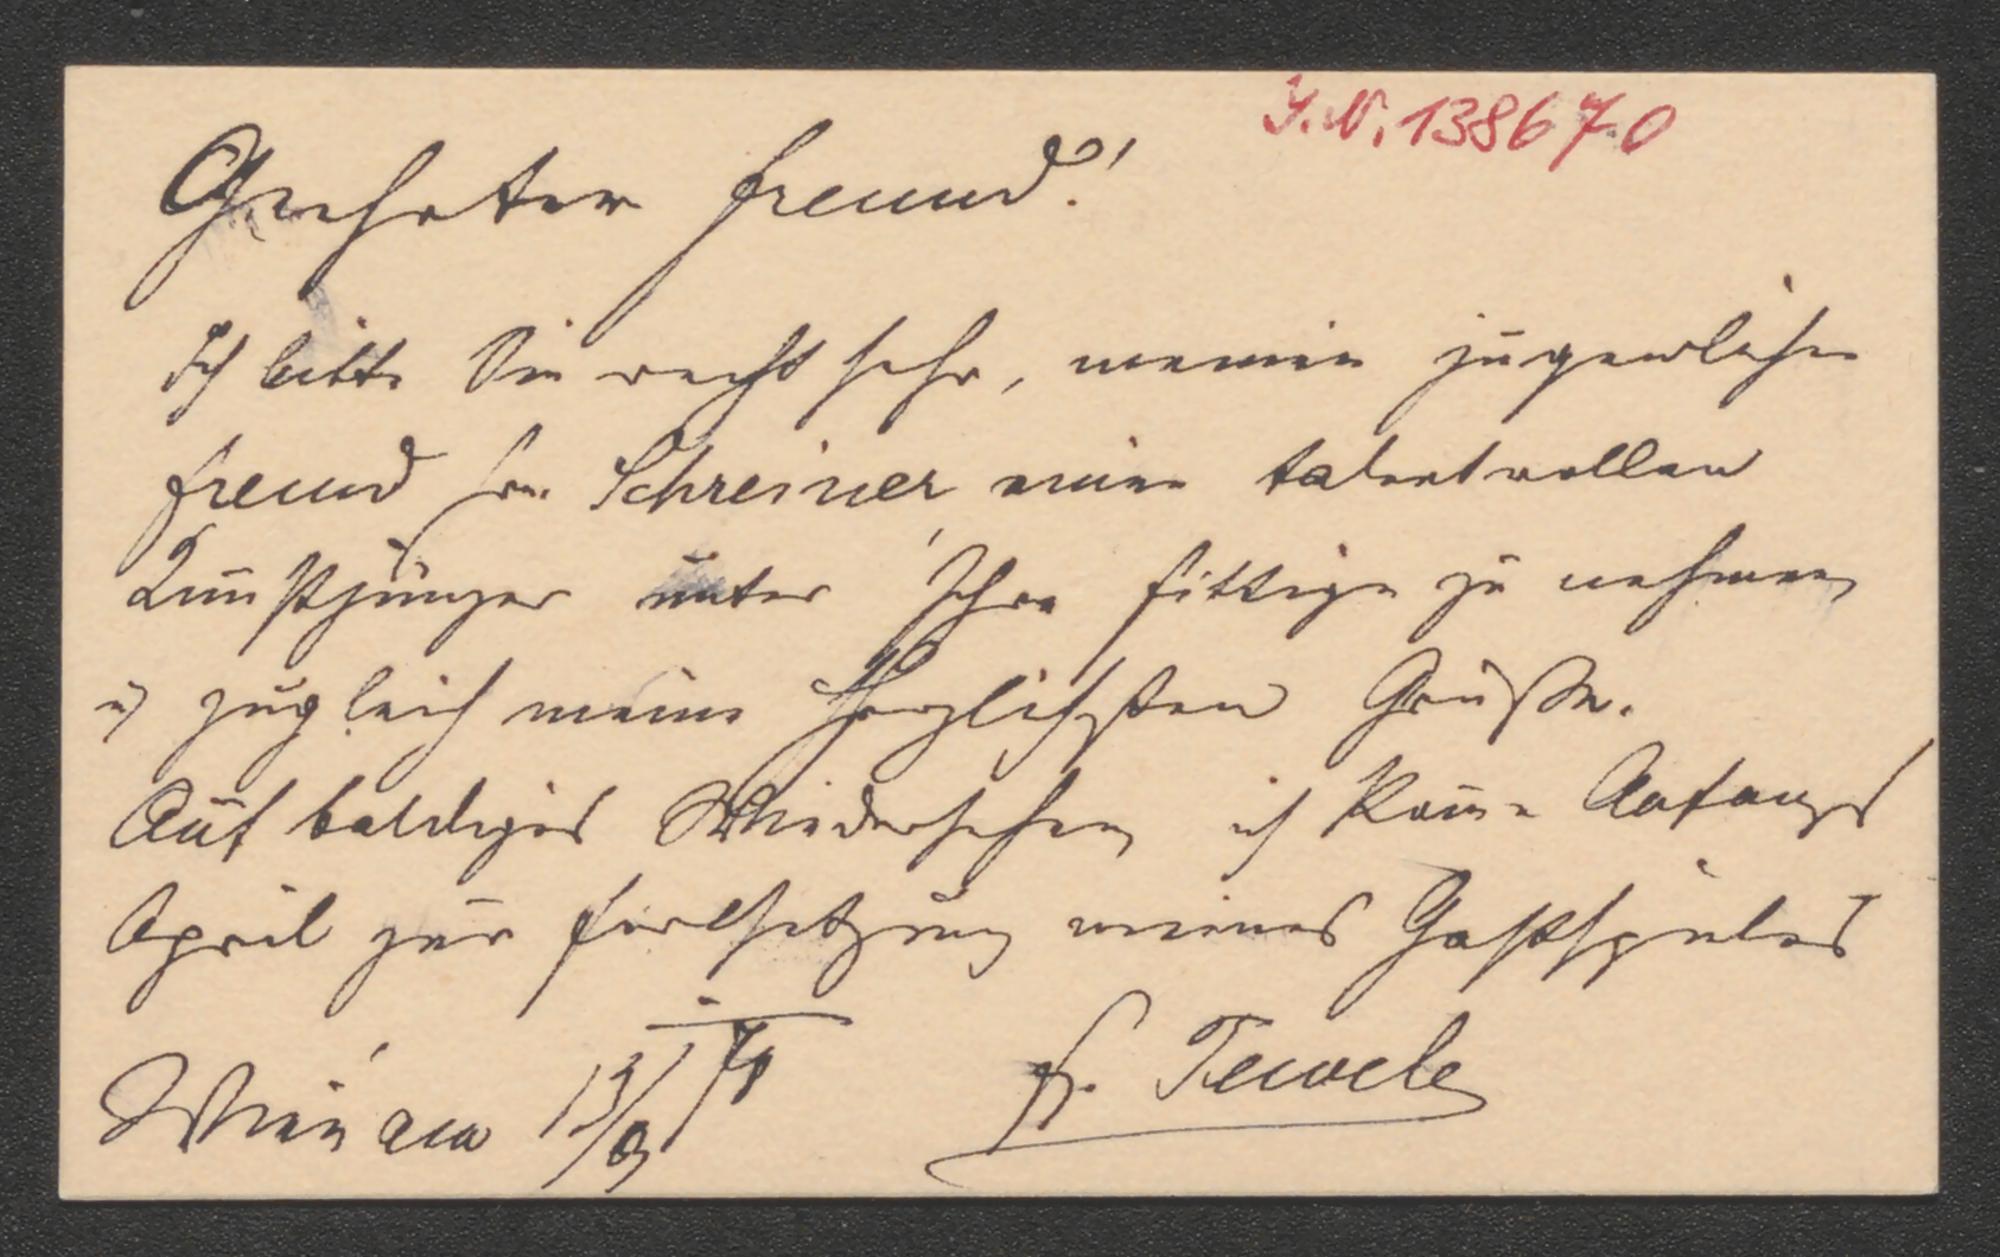 I.N. 138670
Geehrter Freund!
Ich bitte Sie recht sehr, meinen jugendlichen
Freund Hrn. Schreiner einen talentvollen
Kunstjünger unter Ihre Fittige zu nehmen
u zugleich meine herzlichsten Grüße.
Auf baldiges Wiedersehen ich kom̅e Anfangs
April zur Fortsetzung meines Gastspieles
Wien am 13/
Fr. Tewele